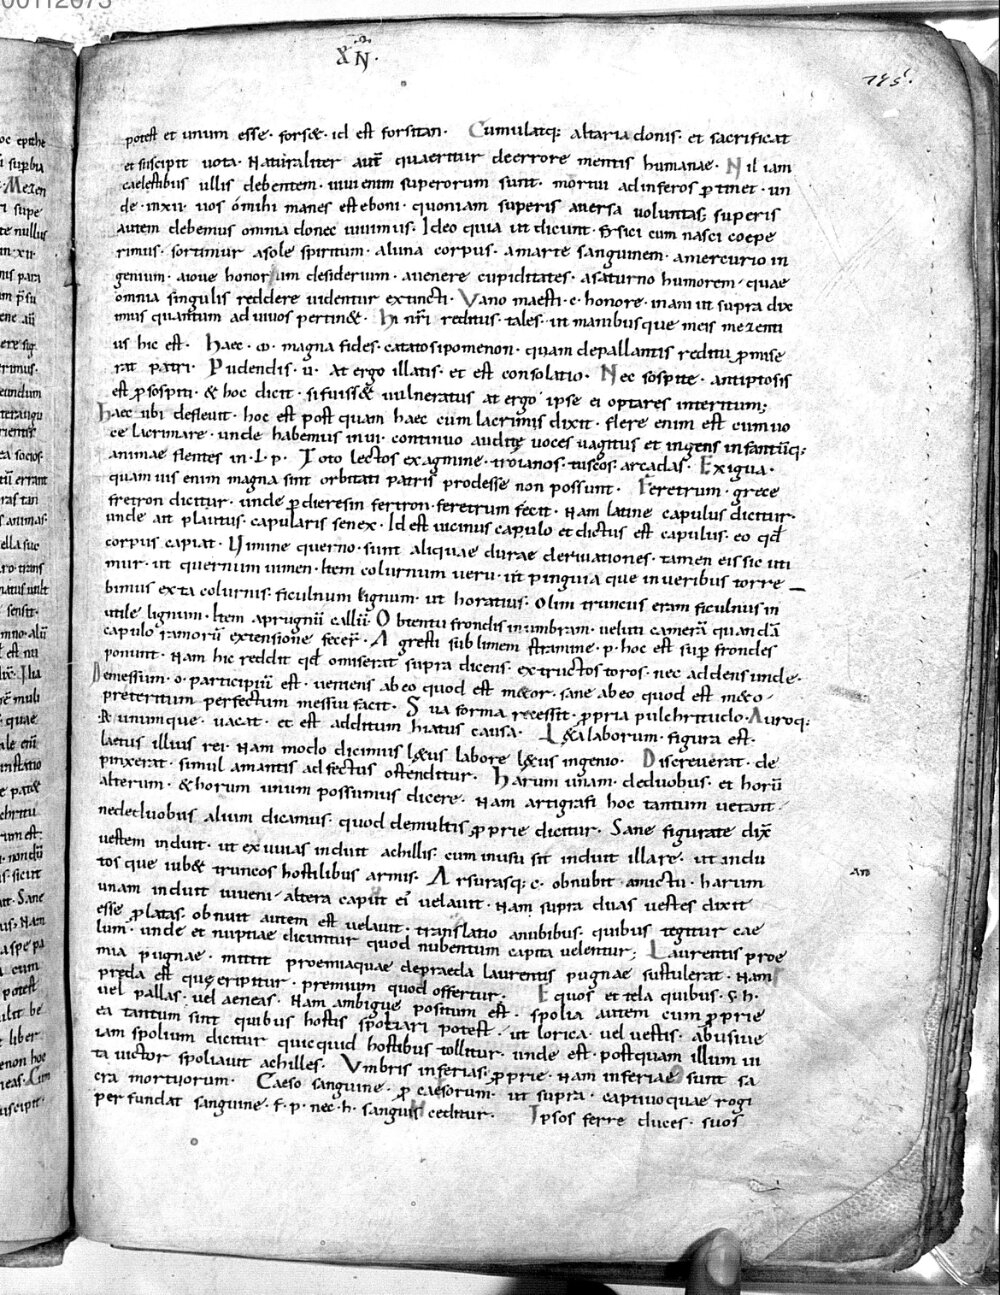 00112673
XÑ.
195.
potest et unum esse· fors&· id est forsitan· Cumulatq; altaria donis· et sacrificat
et suscipit uota· Naturaliter aut̄ quaeritur deerrore mentis humanae· Nil iam
caelestibus ullis debentem· uiui enim superorum sunt· mortui adinferos ꝑtinet· un
de· inxii· uos o mihi manes este boni· quoniam superis auersa uoluntas; superis
autem debemus omnia donec uiuimus· Ideo quia ut dicunt fisici cum nasci coepe
rimus· sortimur asole spiritum· aluna corpus· amarte sanguinem· amercurio in
genium· aioue honorum desiderium· auenere cupiditates· asaturno humorem· quae
omnia singulis reddere uidentur extincti· Vano maesti·c· honore· inani ut supra dix
imus quantum ad uiuos pertin&· Hi nr̄i reditus· tales· ut manibusque meis mezenti
us hic est· Haec·m· magna fides· catatosipomenon· quam depallantis reditu ꝓmise
rat patri· Pudendis·u· At ergo illatis· et est consolatio· Nec sospite· antiptosis
est ꝓsospiti· & hoc dicit· si fuiss& uulneratus at ergo ipse ei optares interitum;
haec ubi defleuit· hoc est post quam haec cum lacrimis dixit· flere enim est cum uo
ce lacrimare· unde habemus in ui· continuo auditę uoces uagitus et ingens infantūq;
animae flentes in·l·p· Toto lectos exagmine· troianos· tuscos· arcadas· Exigua·
quam uis enim magna sint orbitati patris prodesse non possunt· Feretrum· grece
fretron dicitur· unde ꝑ dieresin fertron· feretrum fecit· Nam latine capulus dicitur·
unde ait plautus· capularis senex· Id est uicinus capulo et dictus est capulus· eo qđ
corpus capiat· Vimine querno· sunt aliquae durae deriuationes· tamen eis sic uti
mur· ut quernum uimen· Item colurnum ueru· ut pinguia que in ueribus torre
bimus exta colurnis· ficulnum lignum· ut horatius· Olim truncus eram ficulnus in
utile lignum· Item aprugnū callū· Obtentu frondis inumbram· ueluti camerā quandā
capulo ramorū extensione fecer̄· Agresti sublimem stramine·p· hoc est suꝑ frondes
ponunt· Nam hic reddit qđ omiserat supra dicens· extructos toros· nec addens unde·
Demessum·o· participiū est· ueniens ab eo quod est m&or· sane ab eo quod est m&o·
preteritum perfectum messui facit· Sua forma recessit· ꝓpria pulchritudo· Auroq;
& unumque· uacat· et est additum hiatus causa· L&a laborum· figura est·
laetus illius rei· Nam modo dicimus l&us labore l&us ingenio· Discreuerat· de
pinxerat· simul amantis adfectus ostenditur· Harum unam· deduobus· et horū
alterum· & horum unum possumus dicere· Nam artigrafi hoc tantum uetant·
nededuobus alium dicamus· quod demultis ꝓprie dicitur· Sane figurate dix̄
uestem induit· ut exuuias indutus achillis· cum inusu sit induit illare· ut indu
tos que iub& truncos hostilibus armis· Arsurasq;c· obnubit amictu· harum
unam induit iuueni· altera caput ei' uelauit· Nam supra duas uestes dixit
esse ꝓlatas· obnuit autem est uelauit· translatio anubibus· quibus tegitur cae
lum· unde et nuptiae dicuntur quod nubentum capita uelentur; Laurentis proe
mia pugnae· mittit proemiaquae depraeda laurentis pugnae sustulerat· Nam
preda est quę eripitur· premium quod offertur· Equos et tela quibus·s·h·
uel pallas· uel aeneas· Nam ambigue positum est· spolia autem cum ꝓprie
ea tantum sint quibus hostis spoliari potest· ut lorica· uel uestis· abusiue
iam spolium dicitur quicquid hostibus tollitur· unde est· postquam illum ui
ta uictor spoliauit achilles· Vmbris inferias· ꝓprie· Nam inferiae sunt sa
cra mortuorum· Caeso sanguine· ꝓ caesorum· ut supra· captiuoquae rogi
per fundat sanguine·f·p· nec·h· sanguis ceditur· Ipsos ferre duces· suos
an